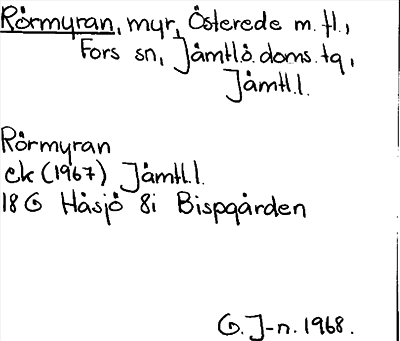 Rörmyran, myr, Österede m.fl.,
Fors sn, Jämtlö.doms.tg,
Jämtl.l.
Rörmyran
ek (1967) Jämtl.l.
18 G Håsjö 8i Bispgården
G. J-n. 1968.